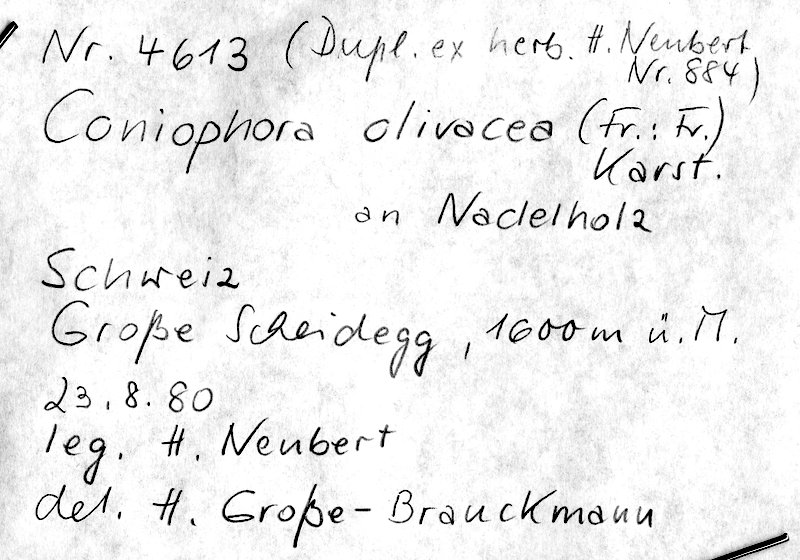 Nr. 4613 (Dupl. ex herb. H. Neubert
Nr. 884)
Coniophora olivacea (Fr.: Fr.)
Karst.
an Nadelholz
Schweiz
Große Scheidegg, 1600m ü. M.
23.8.80
leg. H. Neubert
det. H. Große-Brauckmann